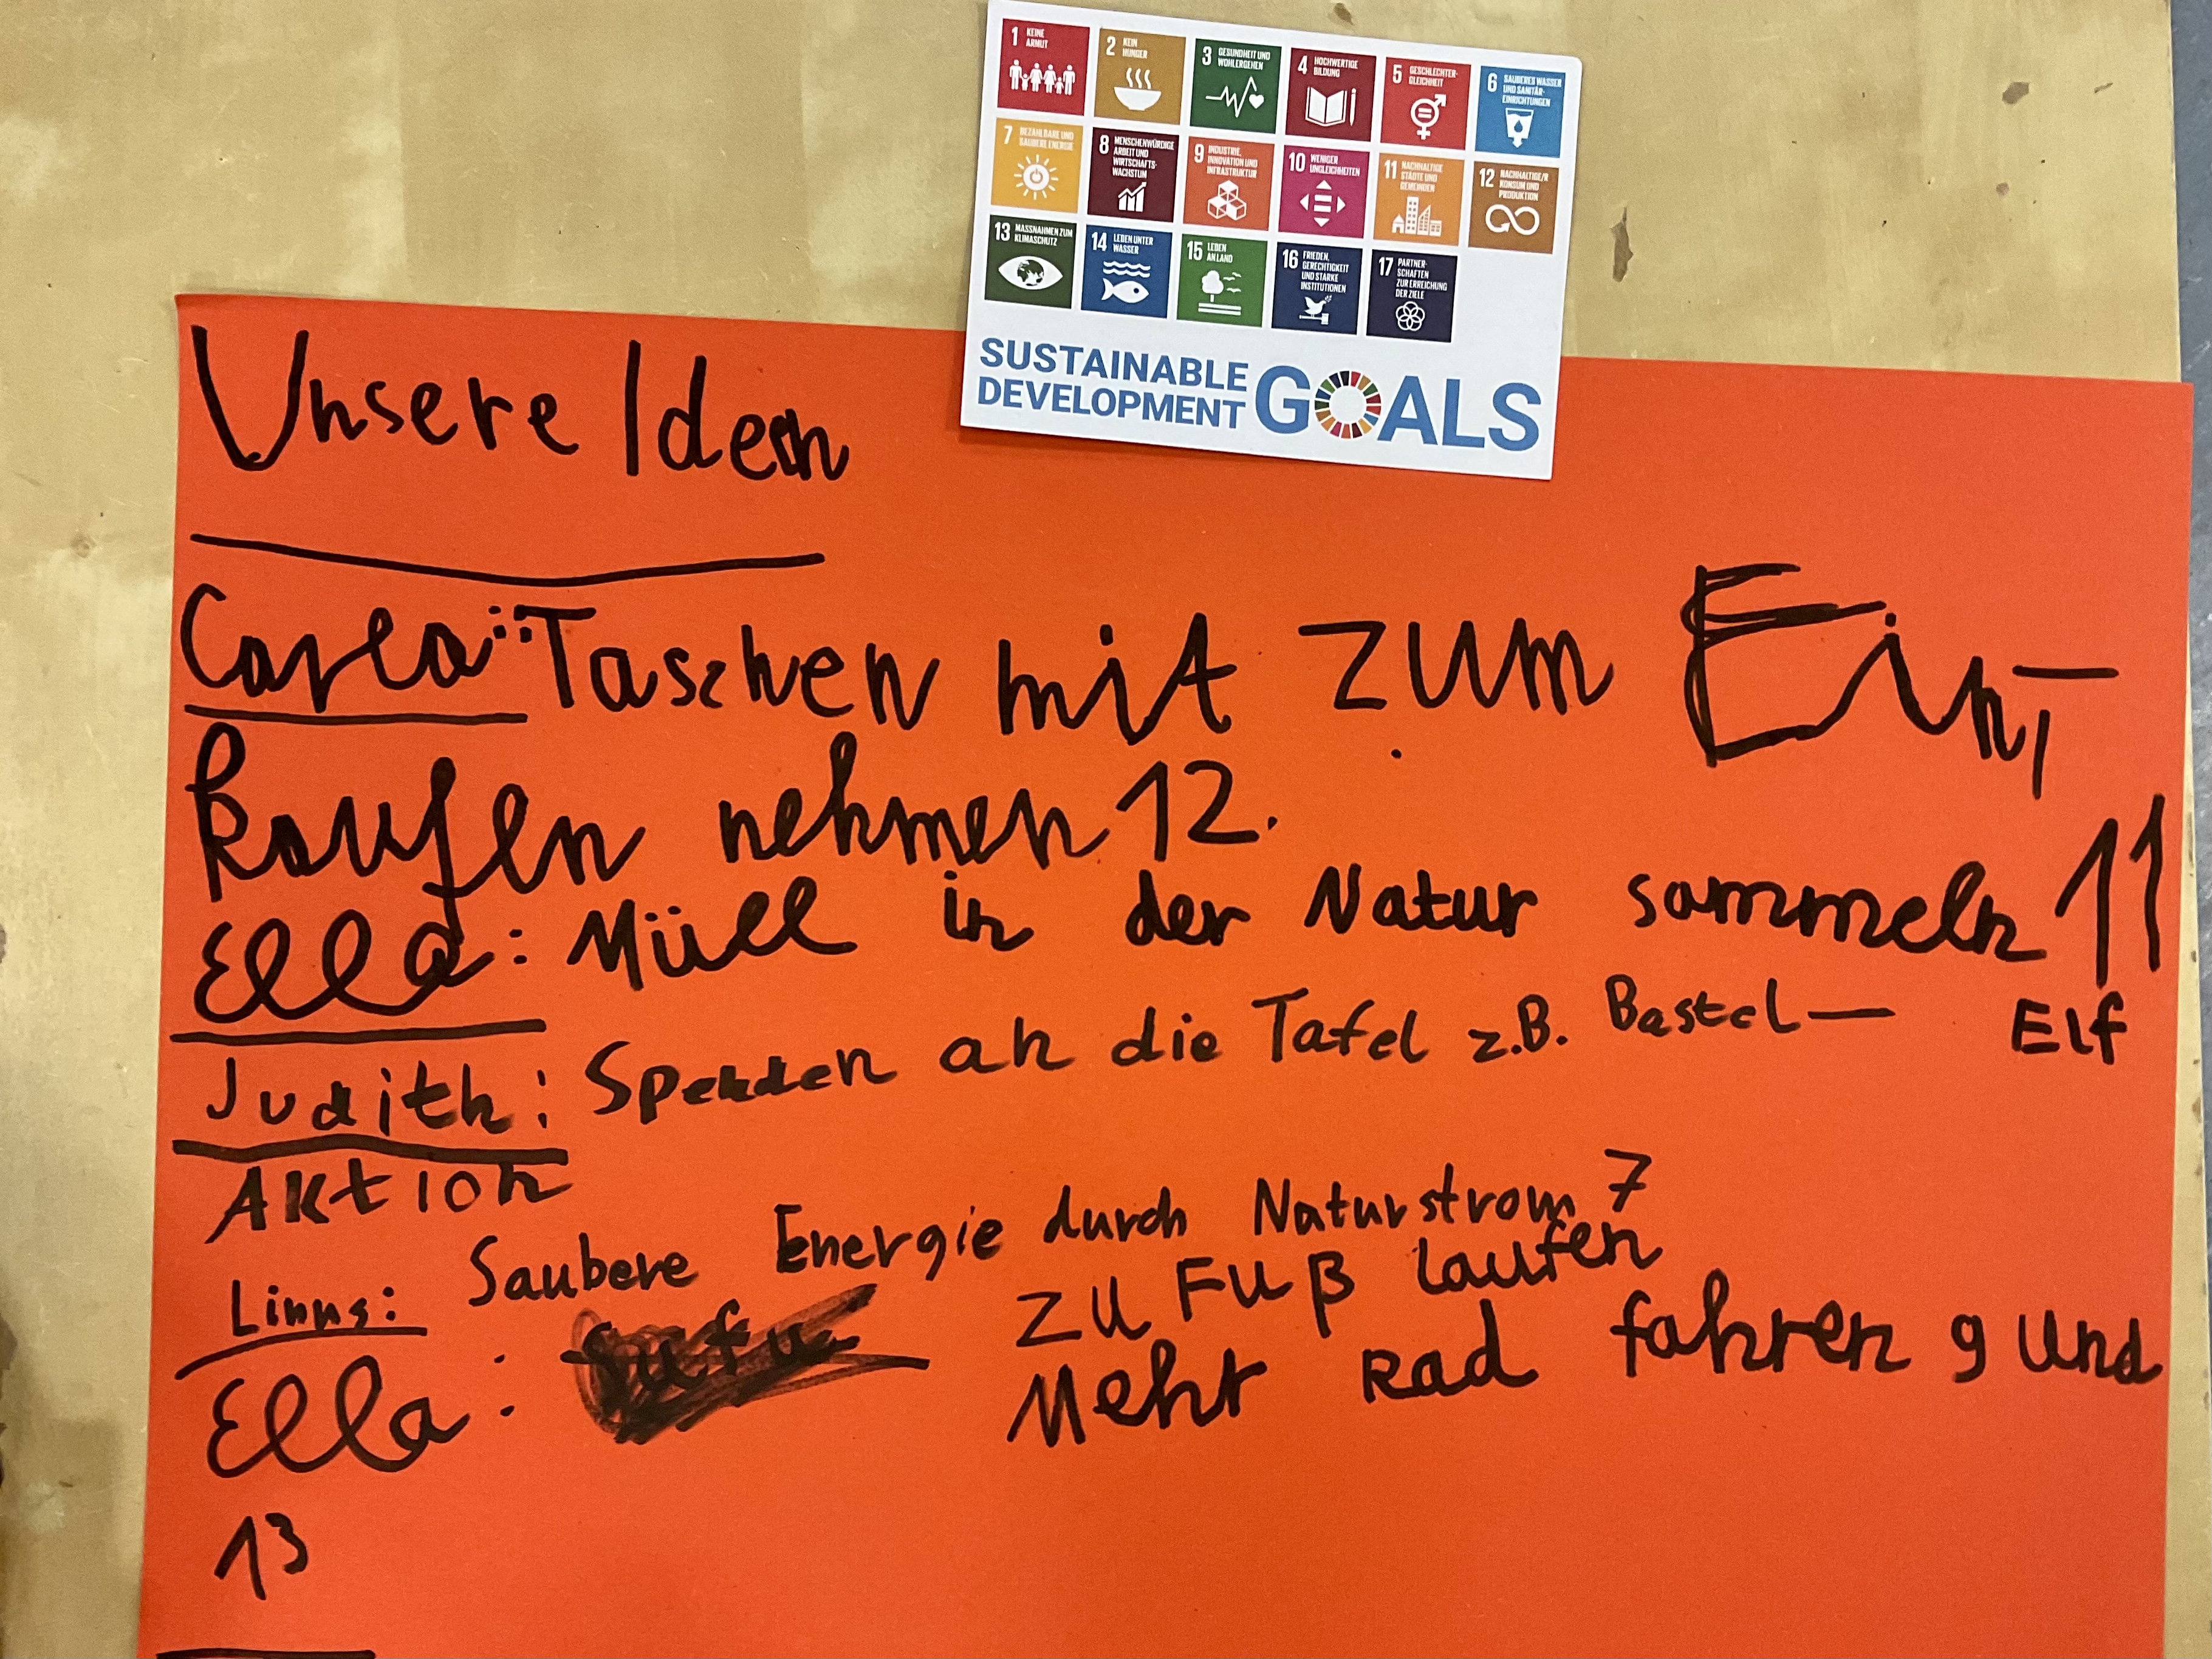 1 KEINE ARMUT
2 KEIN HUNGER
3 GESUNDHEIT UND WOHLERGEHEN
4 HOCHWERTIGE BILDUNG
5 GESCHLECHTER-GLEICHHEIT
6 SAUBERES WASSER UND SANITÄR-EINRICHTUNGEN
7 BEZAHLBARE UND SAUBERE ENERGIE
8 MENSCHENWÜRDIGE ARBEIT UND WIRTSCHAFTS-WACHSTUM
9 INDUSTRIE, INNOVATION UND INFRASTRUKTUR
10 WENIGER UNGLEICHHEITEN
11 NACHHALTIGE STÄDTE UND GEMEINDEN
12 NACHHALTIGE/R KONSUM UND PRODUKTION
13 MASSNAHMEN ZUM KLIMASCHUTZ
14 LEBEN UNTER WASSER
15 LEBEN AN LAND
16 FRIEDEN, GERECHTIGKEIT UND STARKE INSTITUTIONEN
17 PARTNER-SCHAFTEN ZUR ERREICHUNG DER ZIELE
SUSTAINABLE
DEVELOPMENT GOALS
Unsere Ideen
Carla: Taschen mit zum Ein-
kaufen nehmen 12.
Ella: Müll in der Natur sammeln 11
Elf
Judith: Spenden an die Tafel z.B. Bastel-
Aktion
Linus: Saubere Energie durch Naturstrom 7
Ella: zu Fuß laufen
Mehr Rad fahren 9 und
13